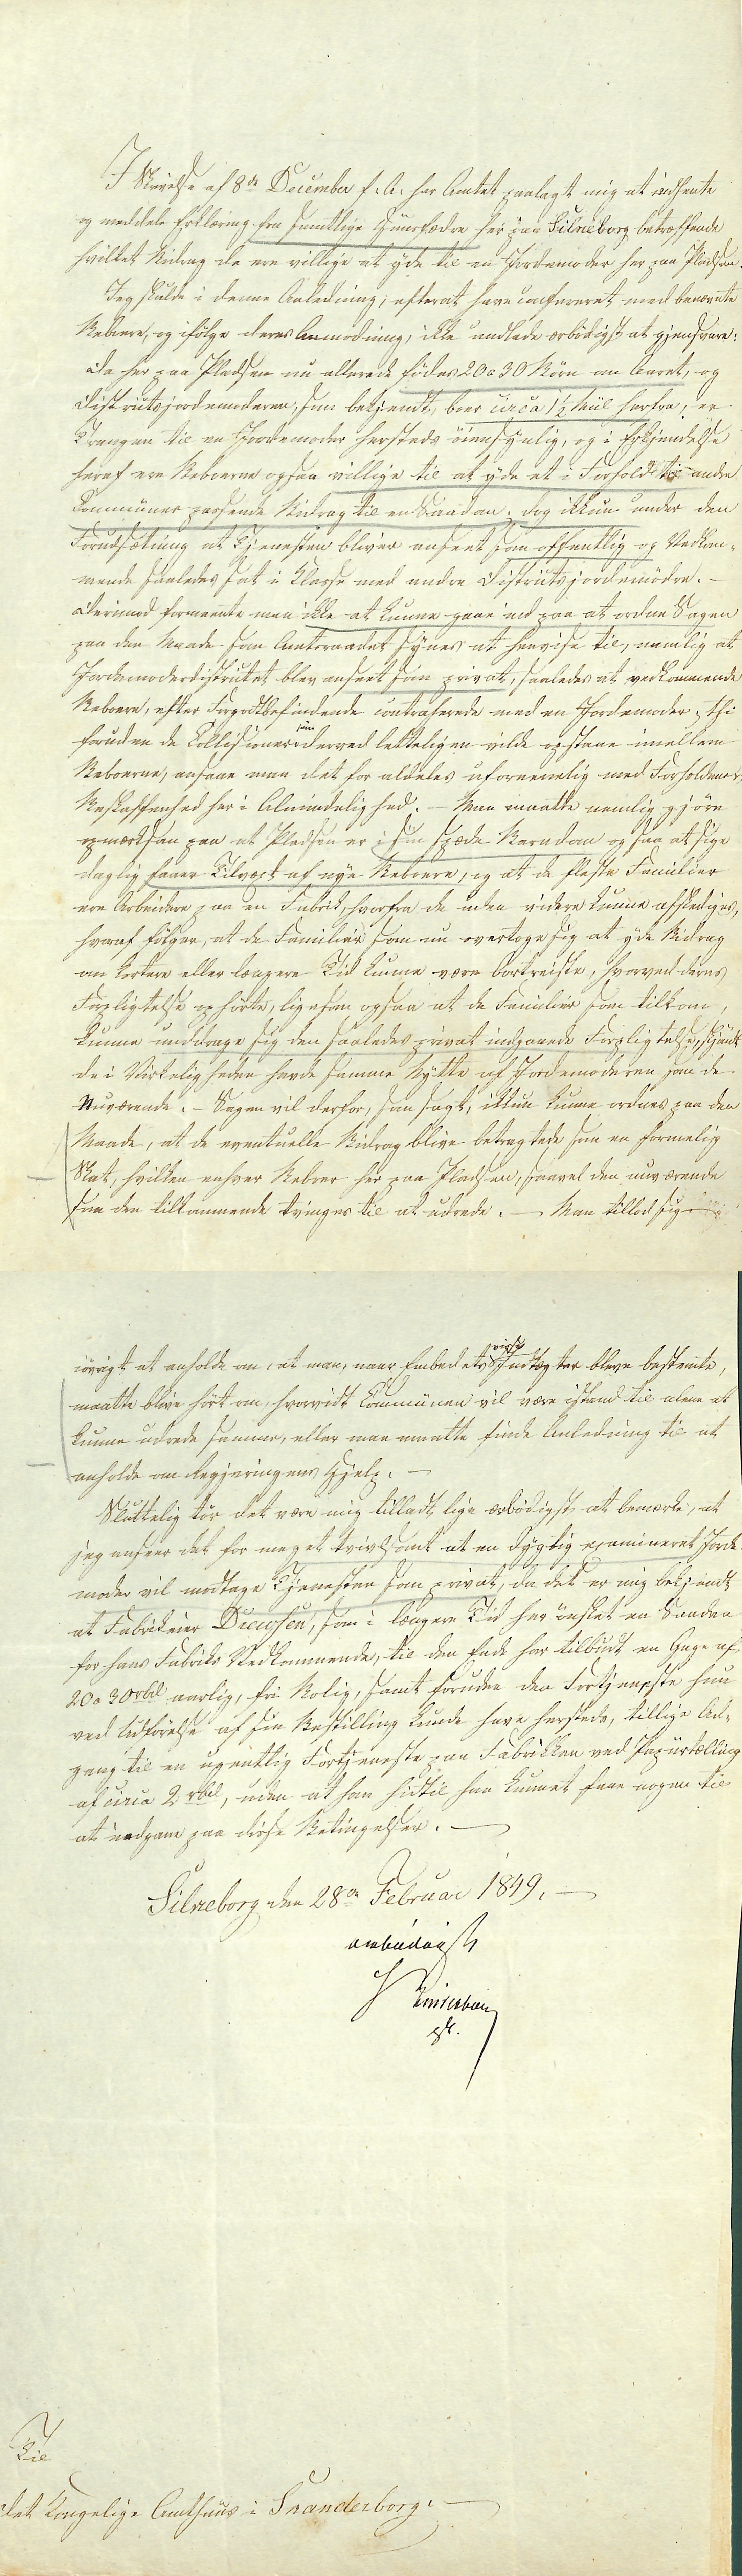 I Skrivelse af 8de December f: A: har Amtet paalagt mig at indhente
og meddele Erklæring fra samtlige Huusfædre her paa Silkeborg betræffende
hvilket Bidrag de ere villige at yde til en Jordemoder her paa Pladsen.
Jeg skulde i denne Anledning, efterat have confereret med benævnte
Beboere, og ifølge deres Anmodning, ikke undlade ærbødigst at gjensvare:
Da her paa Pladsen nu allerede fødes 20 a 30 Børn om Aaret, og
Districtsjordemoderen, som bekjendt, boer circa 1½ Miil herfra, er
Trangen til en Jordemoder hersteds øiensynlig, og i Erkjendelse
heraf ere Beboerne ogsaa villige til at yde et i Forhold til andre
Communer passende Bidrag til en Saadan, dog ikkun under den
Forudsætning at Tjenesten bliver anseet som offentlig og Vedkom-
mende saaledes sat i Klasse med andre Districtsjordemødre. -
Derimod formeente man ikke at kunne gaae ind paa at ordne Sagen
paa den Maade som Amtsraadet synes at henvise til, nemlig at
Jordemoderdistriktet blev anseet som privat, saaledes at vedkommende
Beboere, efter Forgodtbefindende contraherede med en Jordemoder, thi
foruden de Collisioner som derved letteligen vilde opstaae imellem
Beboerne, ansaae man det for aldeles uforeneligt med Forholdenes
Beskaffenhed her i Almindelighed. - Man maatte nemlig gjøre
opmærksom paa at Pladsen er i sin spæde Barndom og saa at sige
daglig faaer Tilvæxt af nye Beboere, og at de fleste Familier
ere Arbeidere paa en Fabrik, hvorfra de uden videre kunne afskediges,
hvoraf følger, at de Familier som nu overtoge sig at yde Bidrag
om kortere eller længere Tid kunne være bortreiste, hvorved deres
Forpligtelse ophørte, ligesom ogsaa at de Familier som tilkom,
kunne unddrage sig den saaledes privat indgaaede Forpligtelse, skjøndt
de i Virkeligheden havde samme Nytte af Jordemoderen som de
Nuværende. - Sagen vil derfor, som sagt, ikkun kunne ordnes paa den
Maade, at de eventuelle Bidrag blive betragtede som en formelig
Skat, hvilken enhver Beboer her paa Pladsen, saavel den nuværende
som den tilkommende tvinges til at udrede. - Man tillod sig
iøvrigt at anholde om, at man, naar Embedets visse Indtægter bleve bestemte,
maatte blive hørt om, hvorvidt Communen vil være istand til alene at
kunne udrede samme, eller man maatte finde Anledning til at
anholde om Regjeringens Hjelp. -
Sluttelig tør det være mig tilladt lige ærbødigst at bemærke, at
jeg anseer det for meget tvivlsomt at en dygtig examineret Jorde-
moder vil modtage Tjenesten som privat, da det er mig bekjendt
at Fabrikeier Drewsen, som i længere Tid har ønsket en Saadan
for hans Fabriks Vedkommende, til den Ende har tilbudt en Gage af
20 a 30 rbd aarlig, fri Bolig, samt foruden den Fortjeneste hun
ved Udførelse af sin Bestilling kunde have hersteds, tillige Ad-
gang til en ugentlig Fortjeneste paa Fabrikken ved Papirtælling
af circa 2 rbd, uden at han hidtil har kunnet faae nogen til
at indgaae paa disse Betingelser. -
Silkeborg den 28de Februar 1849. -
ærbødigst
Til
det Kongelige Amthuus i Skanderborg. -